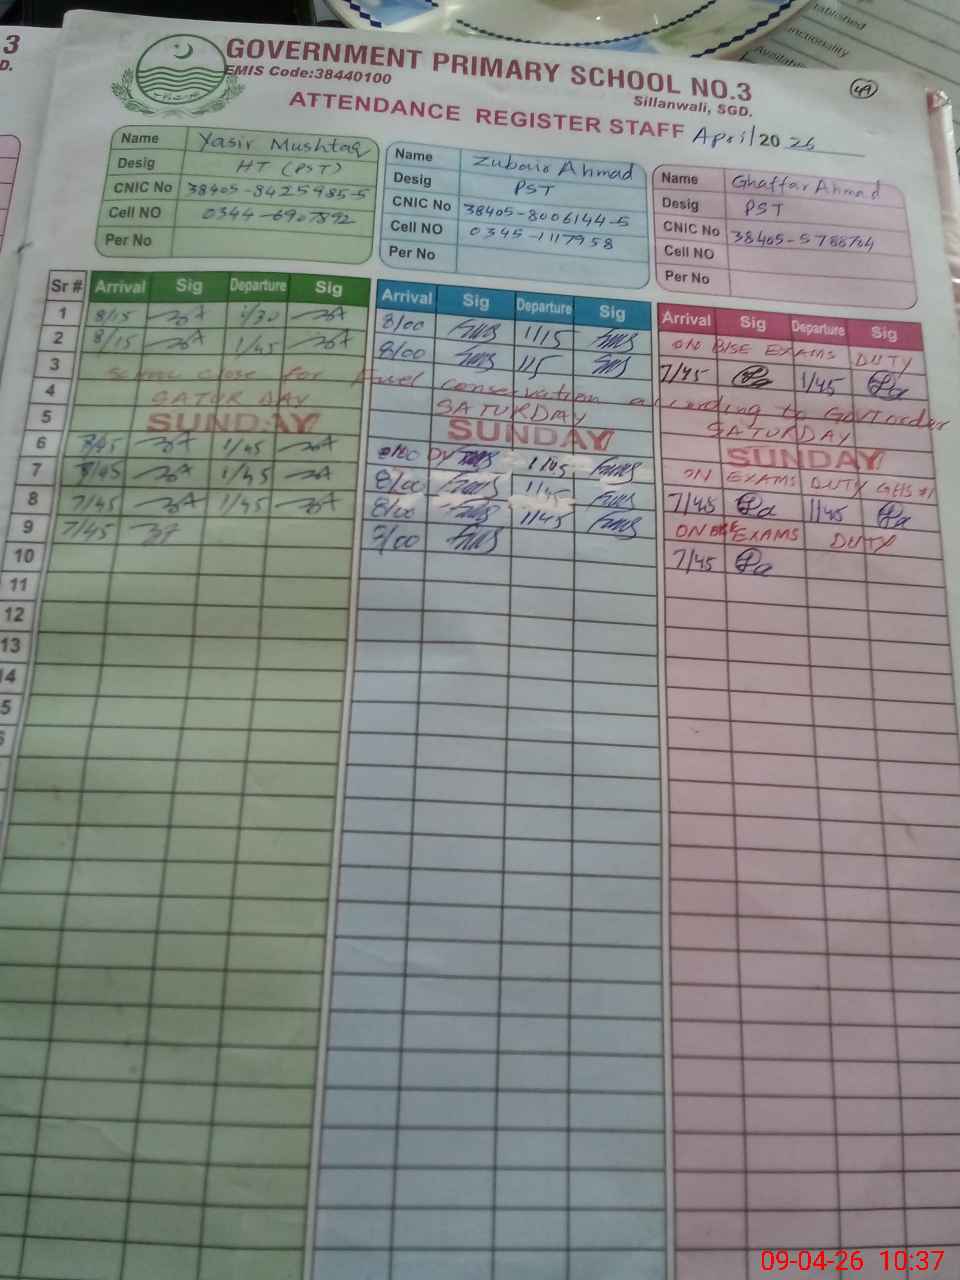 3
D.
GOVERNMENT PRIMARY SCHOOL NO.3
EMIS Code:38440100
Sillanwali, SGD.
49
ATTENDANCE REGISTER STAFF April 2026
Name Yasir Mushtaq
Desig HT (PST)
CNIC No 38405-8425985-5
Cell NO 0344-6907892
Per No
Name Zubair Ahmad
Desig PST
CNIC No 38405-8006144-5
Cell NO 0345-1117958
Per No
Name Ghaffar Ahmad
Desig PST
CNIC No 38405-5788764
Cell NO
Per No
Sr # Arrival Sig Departure Sig Arrival Sig Departure Sig Arrival Sig Departure Sig
1 8/15 1/30 8/00 1/15 ON BISE EXAMS DUTY
2 8/15 1/45 8/00 115 7/45 1/45
3 School close for Fuel conservation according to Govt order
4 SATURDAY SATURDAY SATURDAY
5 SUNDAY SUNDAY SUNDAY
6 7/45 1/45 1/45 ON EXAMS DUTY GHS #1
7 7/45 1/45 8/00 1/45 7/45 1/45
8 7/45 1/45 8/00 1/45 ON BISE EXAMS DUTY
9 7/45 8/00 7/45
10
11
12
13
14
5
6
Available
09-04-26 10:37